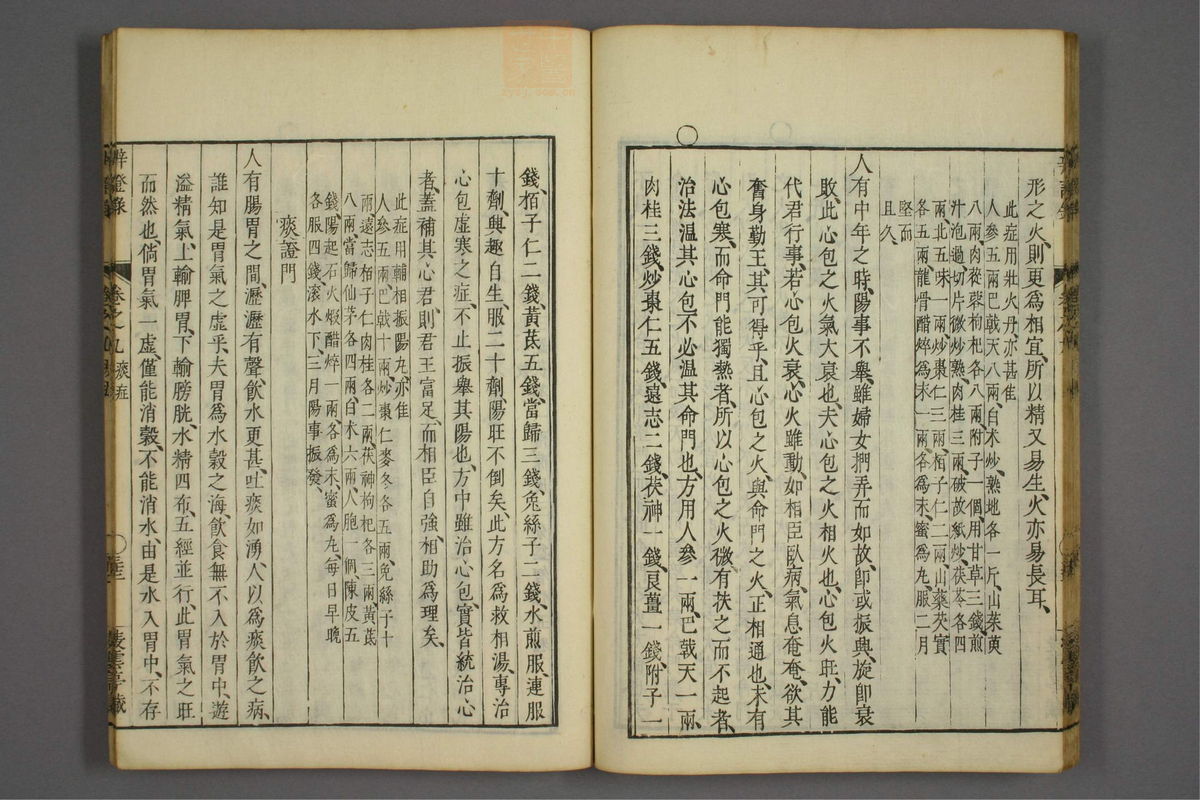 形之火、則更為相宜、所以精又易生、火亦易長耳、
此症用壯火丹亦甚佳
人參五兩巴戟天八兩、白朮炒、熟地各一斤、山茱萸
八兩、肉蓯蓉枸杞各八兩附子一個、用甘草三錢煎
汁泡過切片微炒熟肉桂三兩、破故紙炒、茯苓各四
兩、北五味一兩炒棗仁三兩、栢子仁二兩、山藥芡實
各五兩龍骨醋焠為末一兩、各為末、蜜為丸、服二月
堅而
且久、
人有中年之時、陽事不舉、雖婦女捫弄而如故、卽或振興、旋卽衰
敗、此心包之火氣大衰也、夫心包之火相火也、心包火旺、力能
代君行事、若心包火衰、心火雖動、如相臣臥病、氣息奄奄、欲其
奮身勤王、其可得乎、且心包之火、與命門之火、正相通也、未有
心包寒、而命門能獨熱者、所以心包之火微、有扶之而不起者、
治法溫其心包、不必溫其命門也、方用人參一兩、巴戟天一兩、
肉桂三錢、炒棗仁五錢、遠志二錢、茯神一錢、良薑一錢、附子一
錢、栢子仁二錢、黃芪五錢、當歸三錢、兔絲子二錢、水煎服、連服
十劑、興趣自生、服二十劑、陽旺不倒矣、此方名為救相湯、專治
心包虛寒之症、不止振舉其陽也、方中雖治心包、實皆統治心
者、蓋補其心君、則君王富足、而相臣自強、相助為理矣、
此症用輔相振陽丸、亦佳
人參五兩、巴戟十兩、炒棗仁麥冬各五兩、兔絲子十
兩、遠志栢子仁肉桂各二兩、茯神枸杞各三兩、黃芪
八兩、當歸仙茅各四兩、白朮六兩、人胞一個、陳皮五
錢、陽起石火煆醋焠一兩、各為末、蜜為丸、每日早晚
各服四錢、滾水下、三月陽事振發、
痰證門
人有腸胃之間、瀝瀝有聲、飲水更甚、吐痰如湧、人以為痰飲之病、
誰知是胃氣之虛乎、夫胃為水穀之海、飲食無不入於胃中、遊
溢精氣、上輸脾胃、下輸膀胱、水精四布、五經並行、此胃氣之旺
而然也、倘胃氣一虛、僅能消穀、不能消水、由是水入胃中、不存
卷之九 痰症